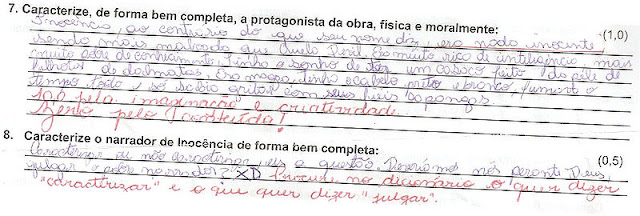 7. Caracterize, de forma bem completa, a protagonista da obra, física e moralmente:
(1,0)
Inocência, ao contrário do que seu nome diz, era nada inocente,
sendo mais malvada que Cruela Devil. Era muito rica de inteligência mais
muito pobre de conhecimento. Tinha o sonho de ter um casaco feito da pele de
filhotes de dálmatas. Era magra, tinha o cabelo preto e branco, fumava o
tempo todo, e só sabia gritar com seus fiéis capangas.
1,0 pela imaginação e criatividade
Zero pelo conteúdo!
8. Caracterize o narrador de Inocência de forma bem completa:
(0,5)
Caracterizar ou não caracterizar, eis a questão. Deveríamos nós, perante Deus,
julgar o pobre narrador? XD Procure no dicionário o "quer dizer
"caracterizar" e o que quer dizer "julgar".